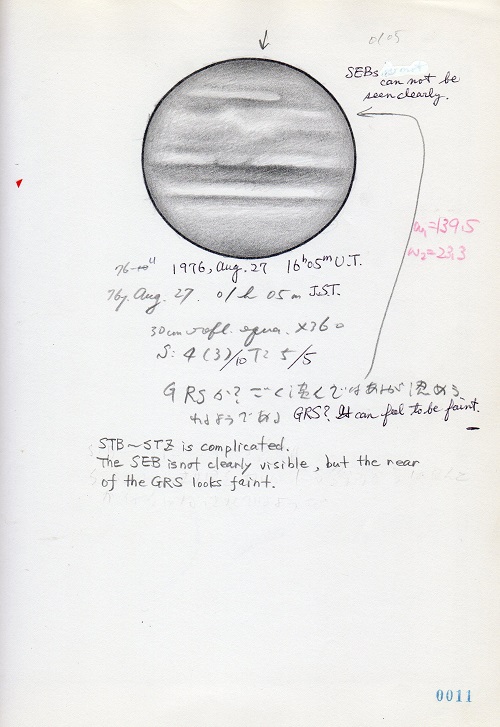 0105
SEBs
can not be
seen clearly.
ω1=139.5
ω2=23.3
1976, Aug. 27 16h05m U.T.
76y Aug. 27. 01h 05m J.S.T.
30cm refl. equa. ×360
S: 4(3)/10 T: 5/5
GRSか?ごく淡くではあるが認めら
れるようである GRS? It can feel to be faint.
STB~STZ is complicated.
The SEB is not clearly visible, but the rear
of the GRS looks faint.
0011